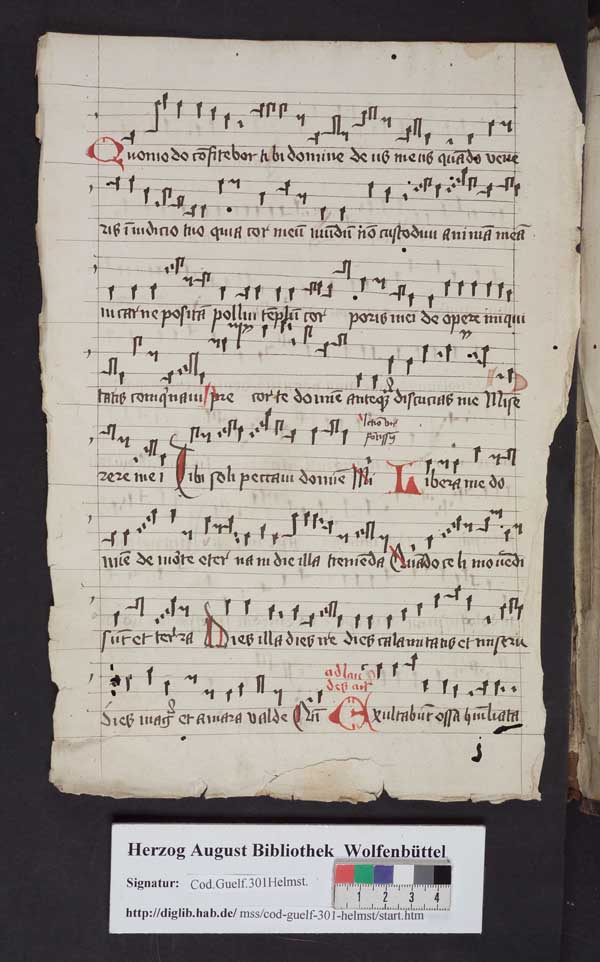 Quomodo cōfitebor tibi domine de iis meis quādo vene
ris ī iudicio tuo quia cor meū mūdū nō custodiui animā meā
in carne posita pollui tēplū cor poris mei de opere iniqui
tatis coinq̄naui pre cor te domīe anteqͣ discucias me Mise
rere mei Tibi soli peccaui domīe Mi Libera me do
mīe de morte eterna in die illa tremēda Quādo celi mouēdi
sūt et terra Dies illa dies ire dies calamitatis et miserie
dies magͣ et amara valde Quā
ad lau
des anͣ
Exultabūt ossa hūiliata
Herzog August Bibliothek Wolfenbüttel
Signatur: Cod.Guelf.301Helmst.
http://diglib.hab.de/ mss/cod-guelf-301-helmst/start.htm
1 2 3 4